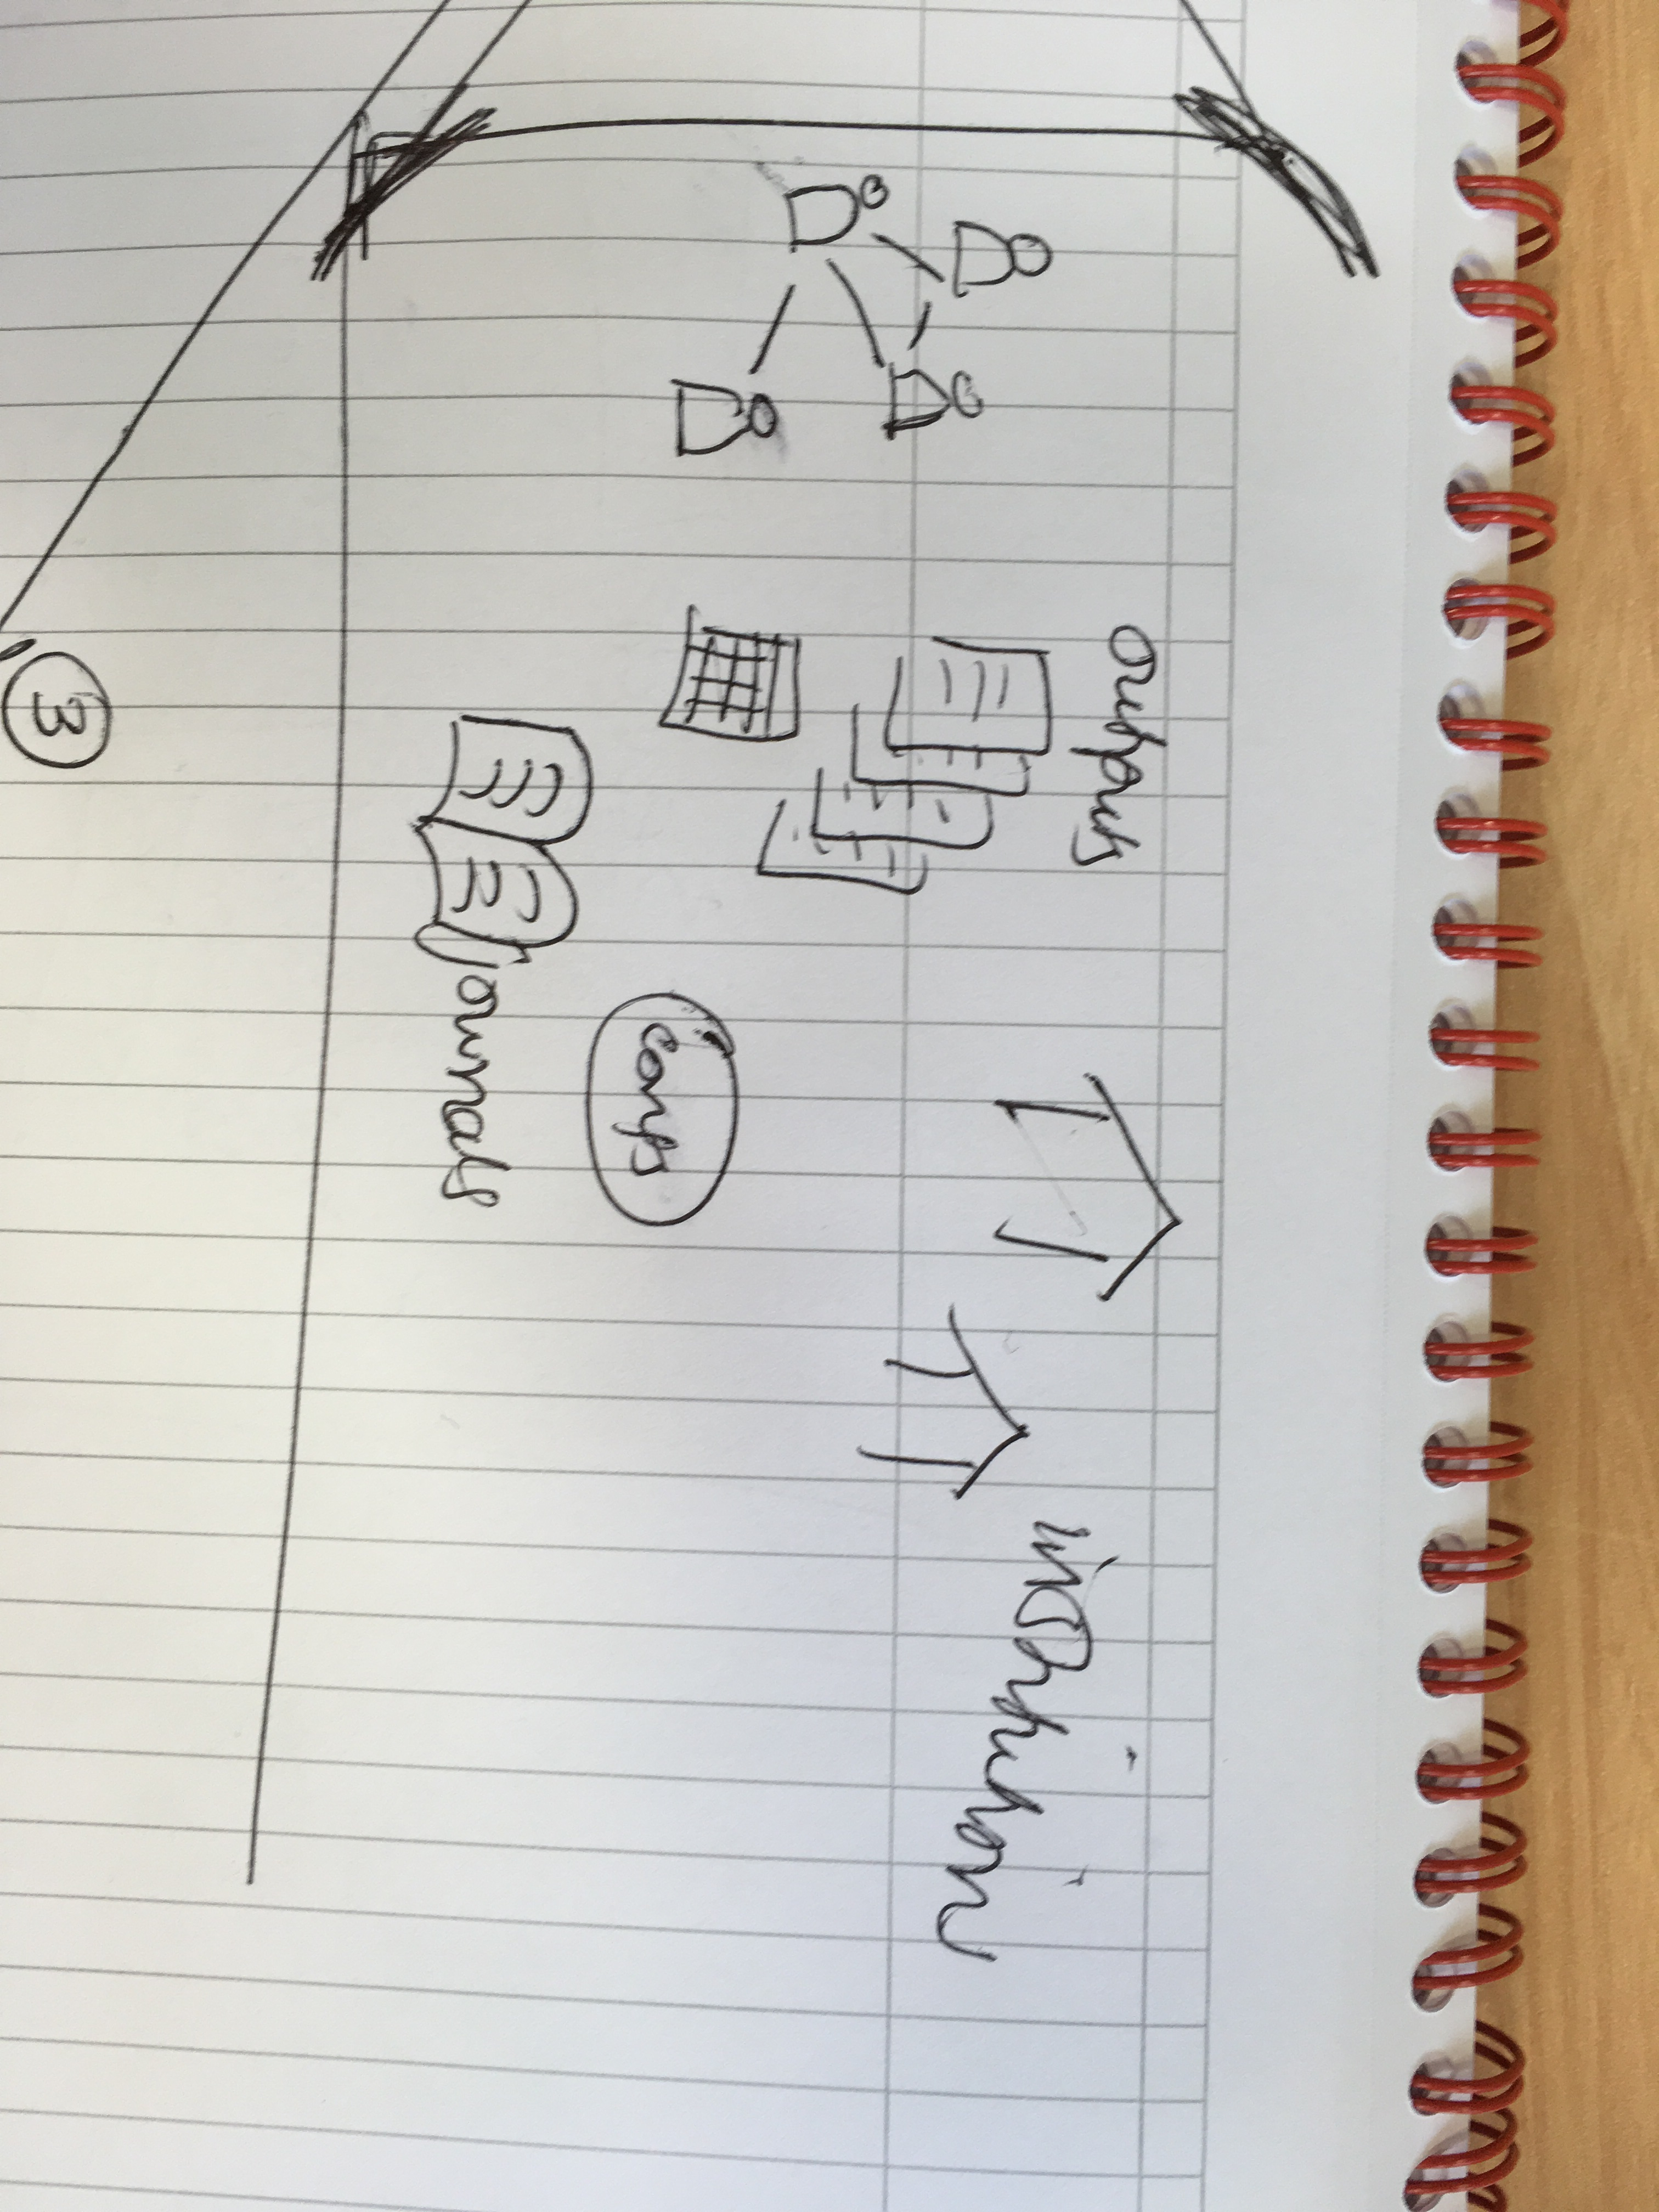 outputs
institution
confs
journals
3